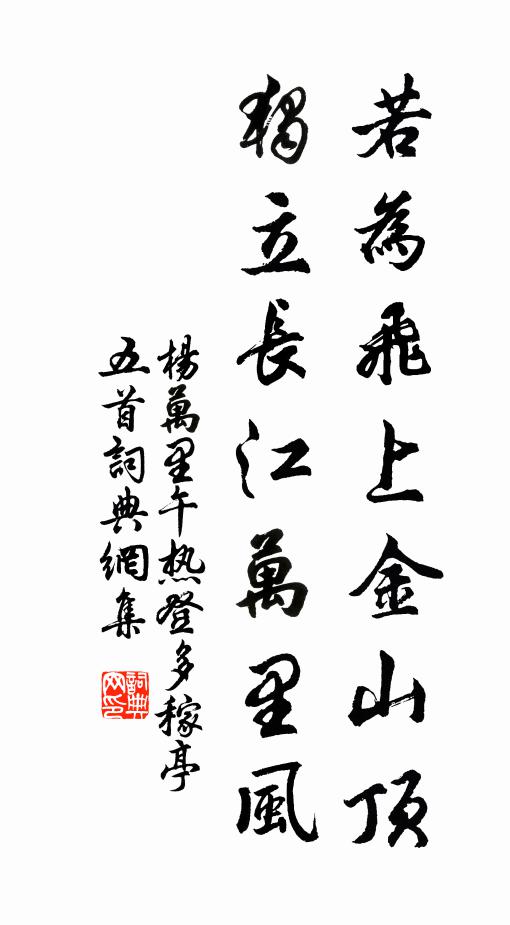 若為飛上金山頂
獨立長江萬里風
楊萬里午热登多稼亭
五首詞典網集
詞典
网印